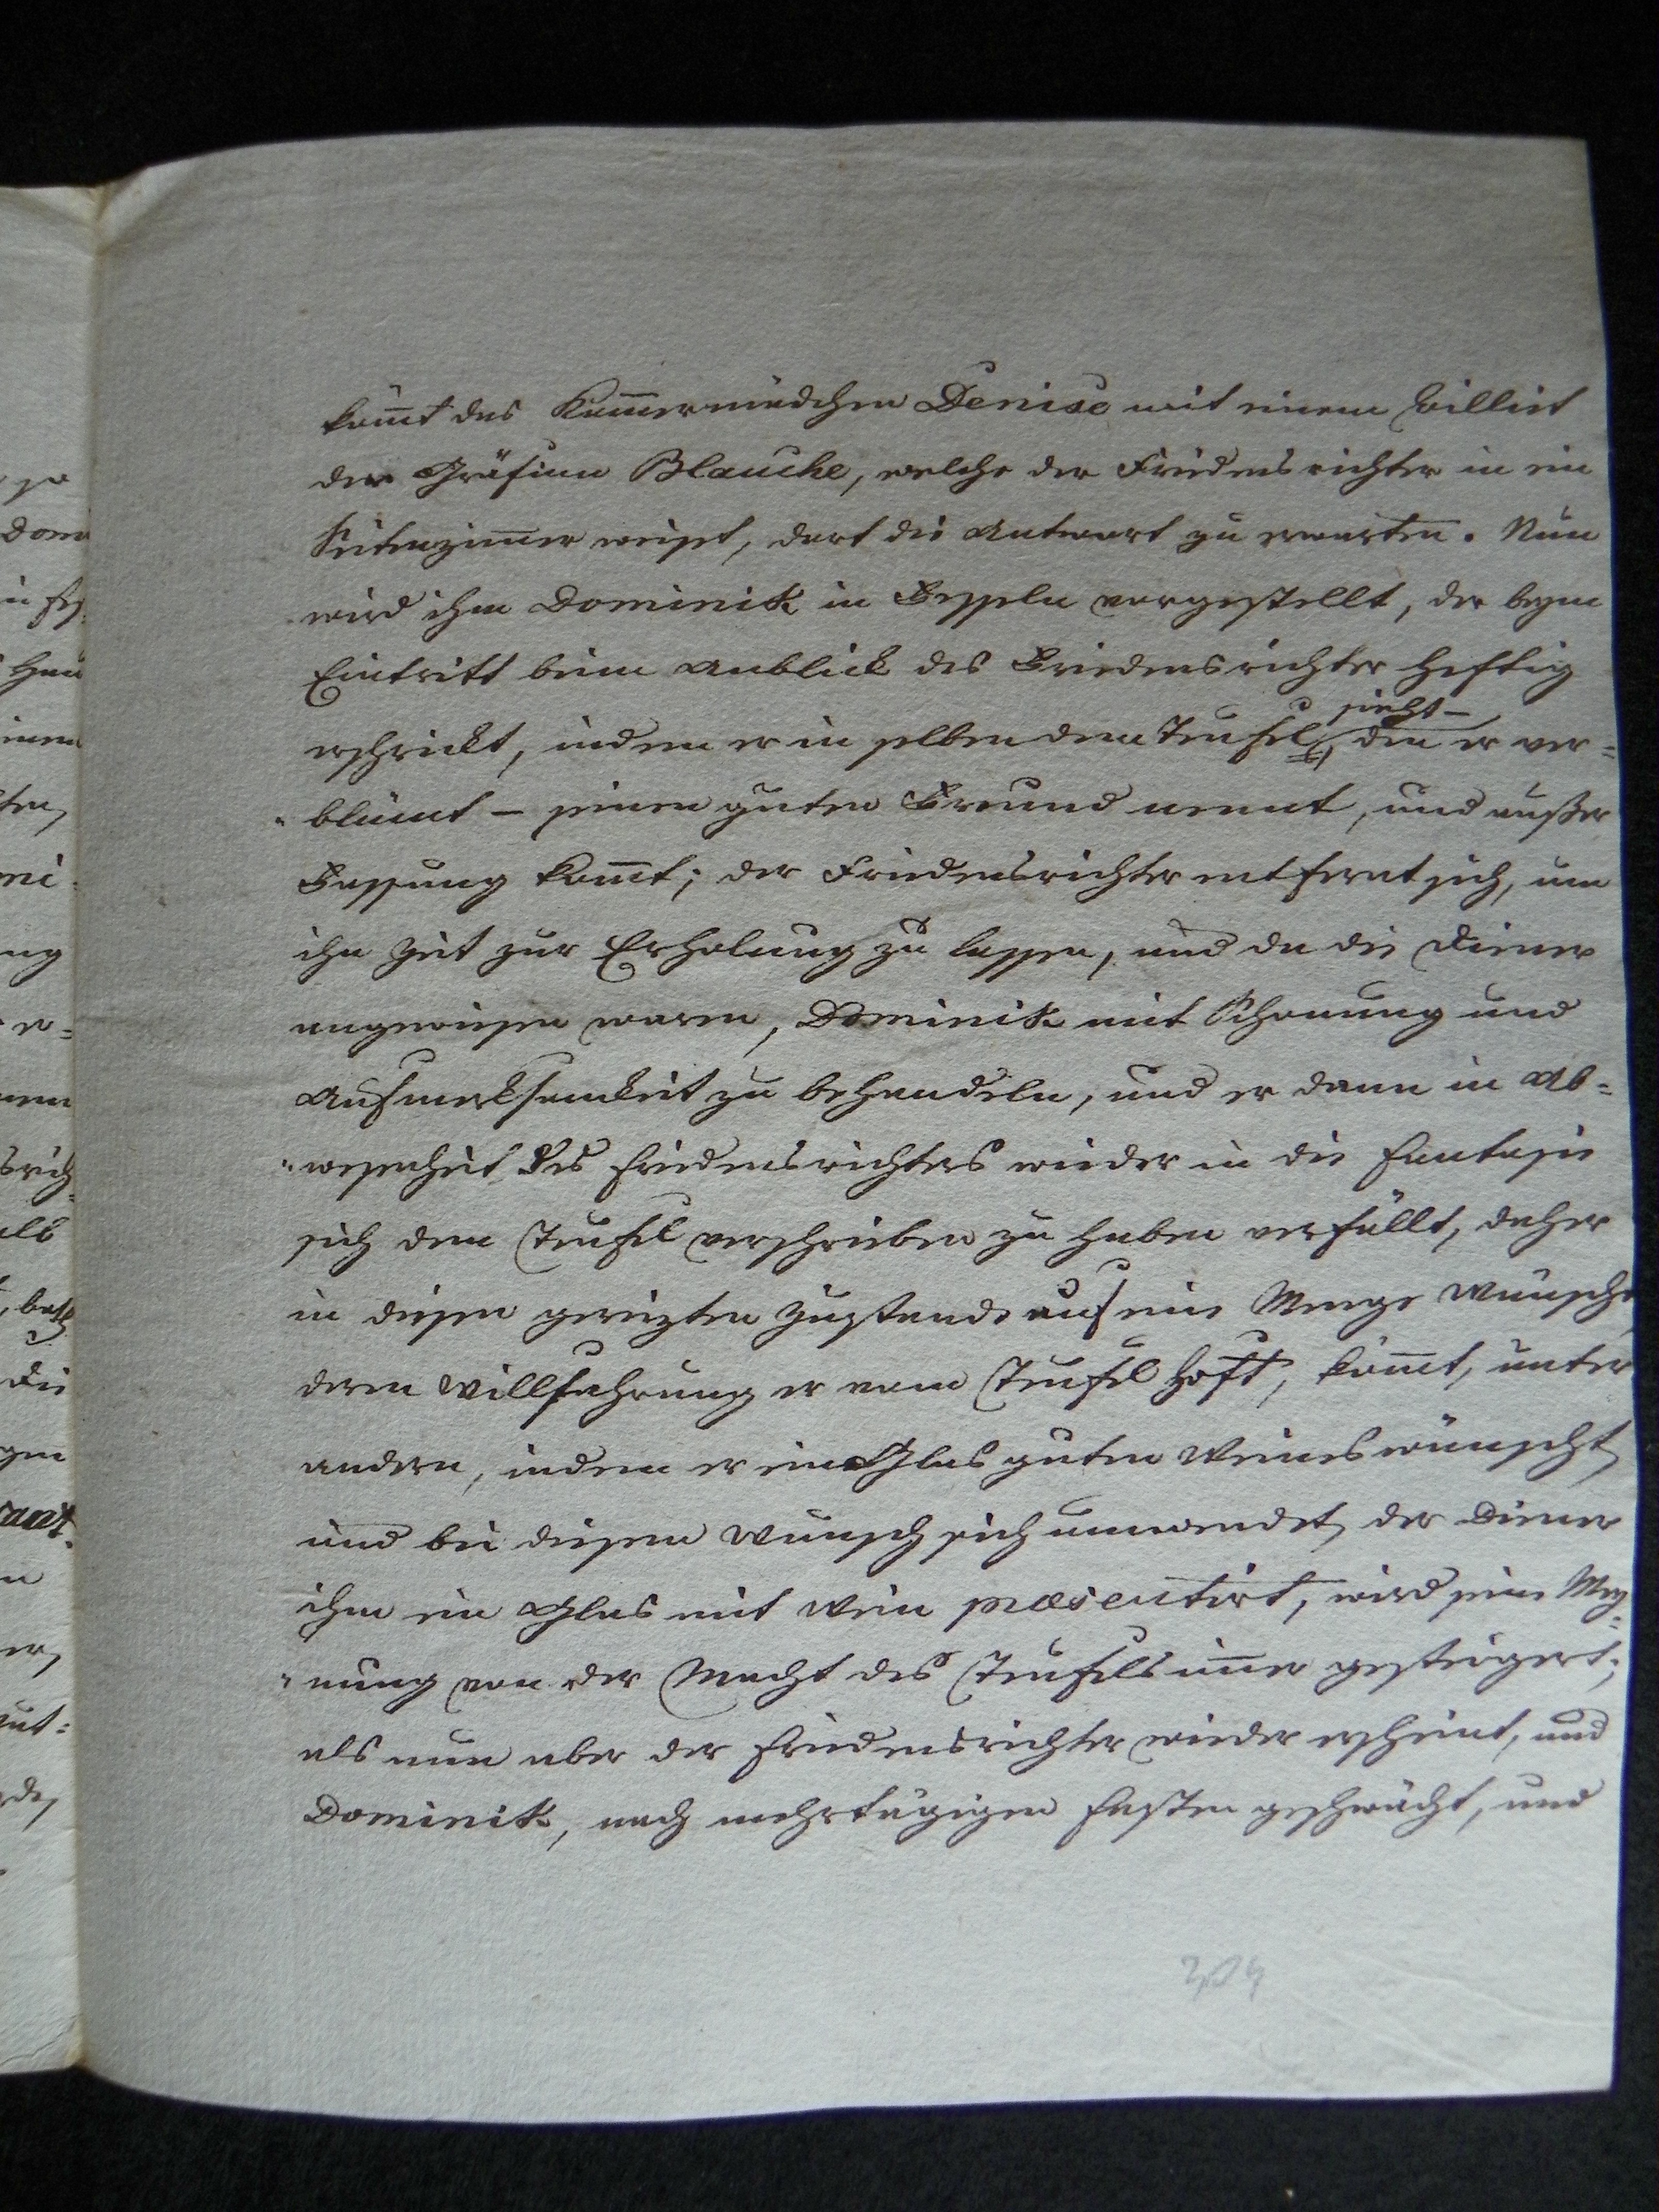 kom̄t das Kam̄ermädchen Denise mit einem Billiet
der Gräfinn Blanche, welche der Friedensrichter in ein
Seitenzim̄er weist, dort die Antwort zu erwarten. Nun
wird ihm Dominik in Fesseln vorgestellt, der beym
Eintritt beim Anblick des Friedensrichter heftig
erschrickt, indem er in selben den Teufel sieht – den er ver=
"blümt – seinen guten Freund nennt, und außer
Fassung kom̄t; der Friedensrichter entfernt sich, um
ihn Zeit zur Erholung zu lassen, und da die Diener
angewiesen waren, Dominik mit Schonung und
Aufmerksamkeit zu behandeln, und er dann in Ab=
"wesenheit des Friedensrichters wieder in die Fantasie
sich dem Teufel verschrieben zu haben verfällt, daher
in diesen gereizten Zustande auf eine Menge Wünsche,
deren Willfahrung er vom Teufel hoft, kom̄t, unter
andern, indem er ein Glas guten Weines wünscht,
und bei diesem Wunsch sich umwendet, der Diener
ihm ein Glas mit Wein præsentirt, wird seine Mey=
"nung von der Macht des Teufels im̄er gesteigert;
als nun aber der Friedensrichter wieder erscheint, und
Dominik, nach mehrtägigen Fasten geschwächt, und